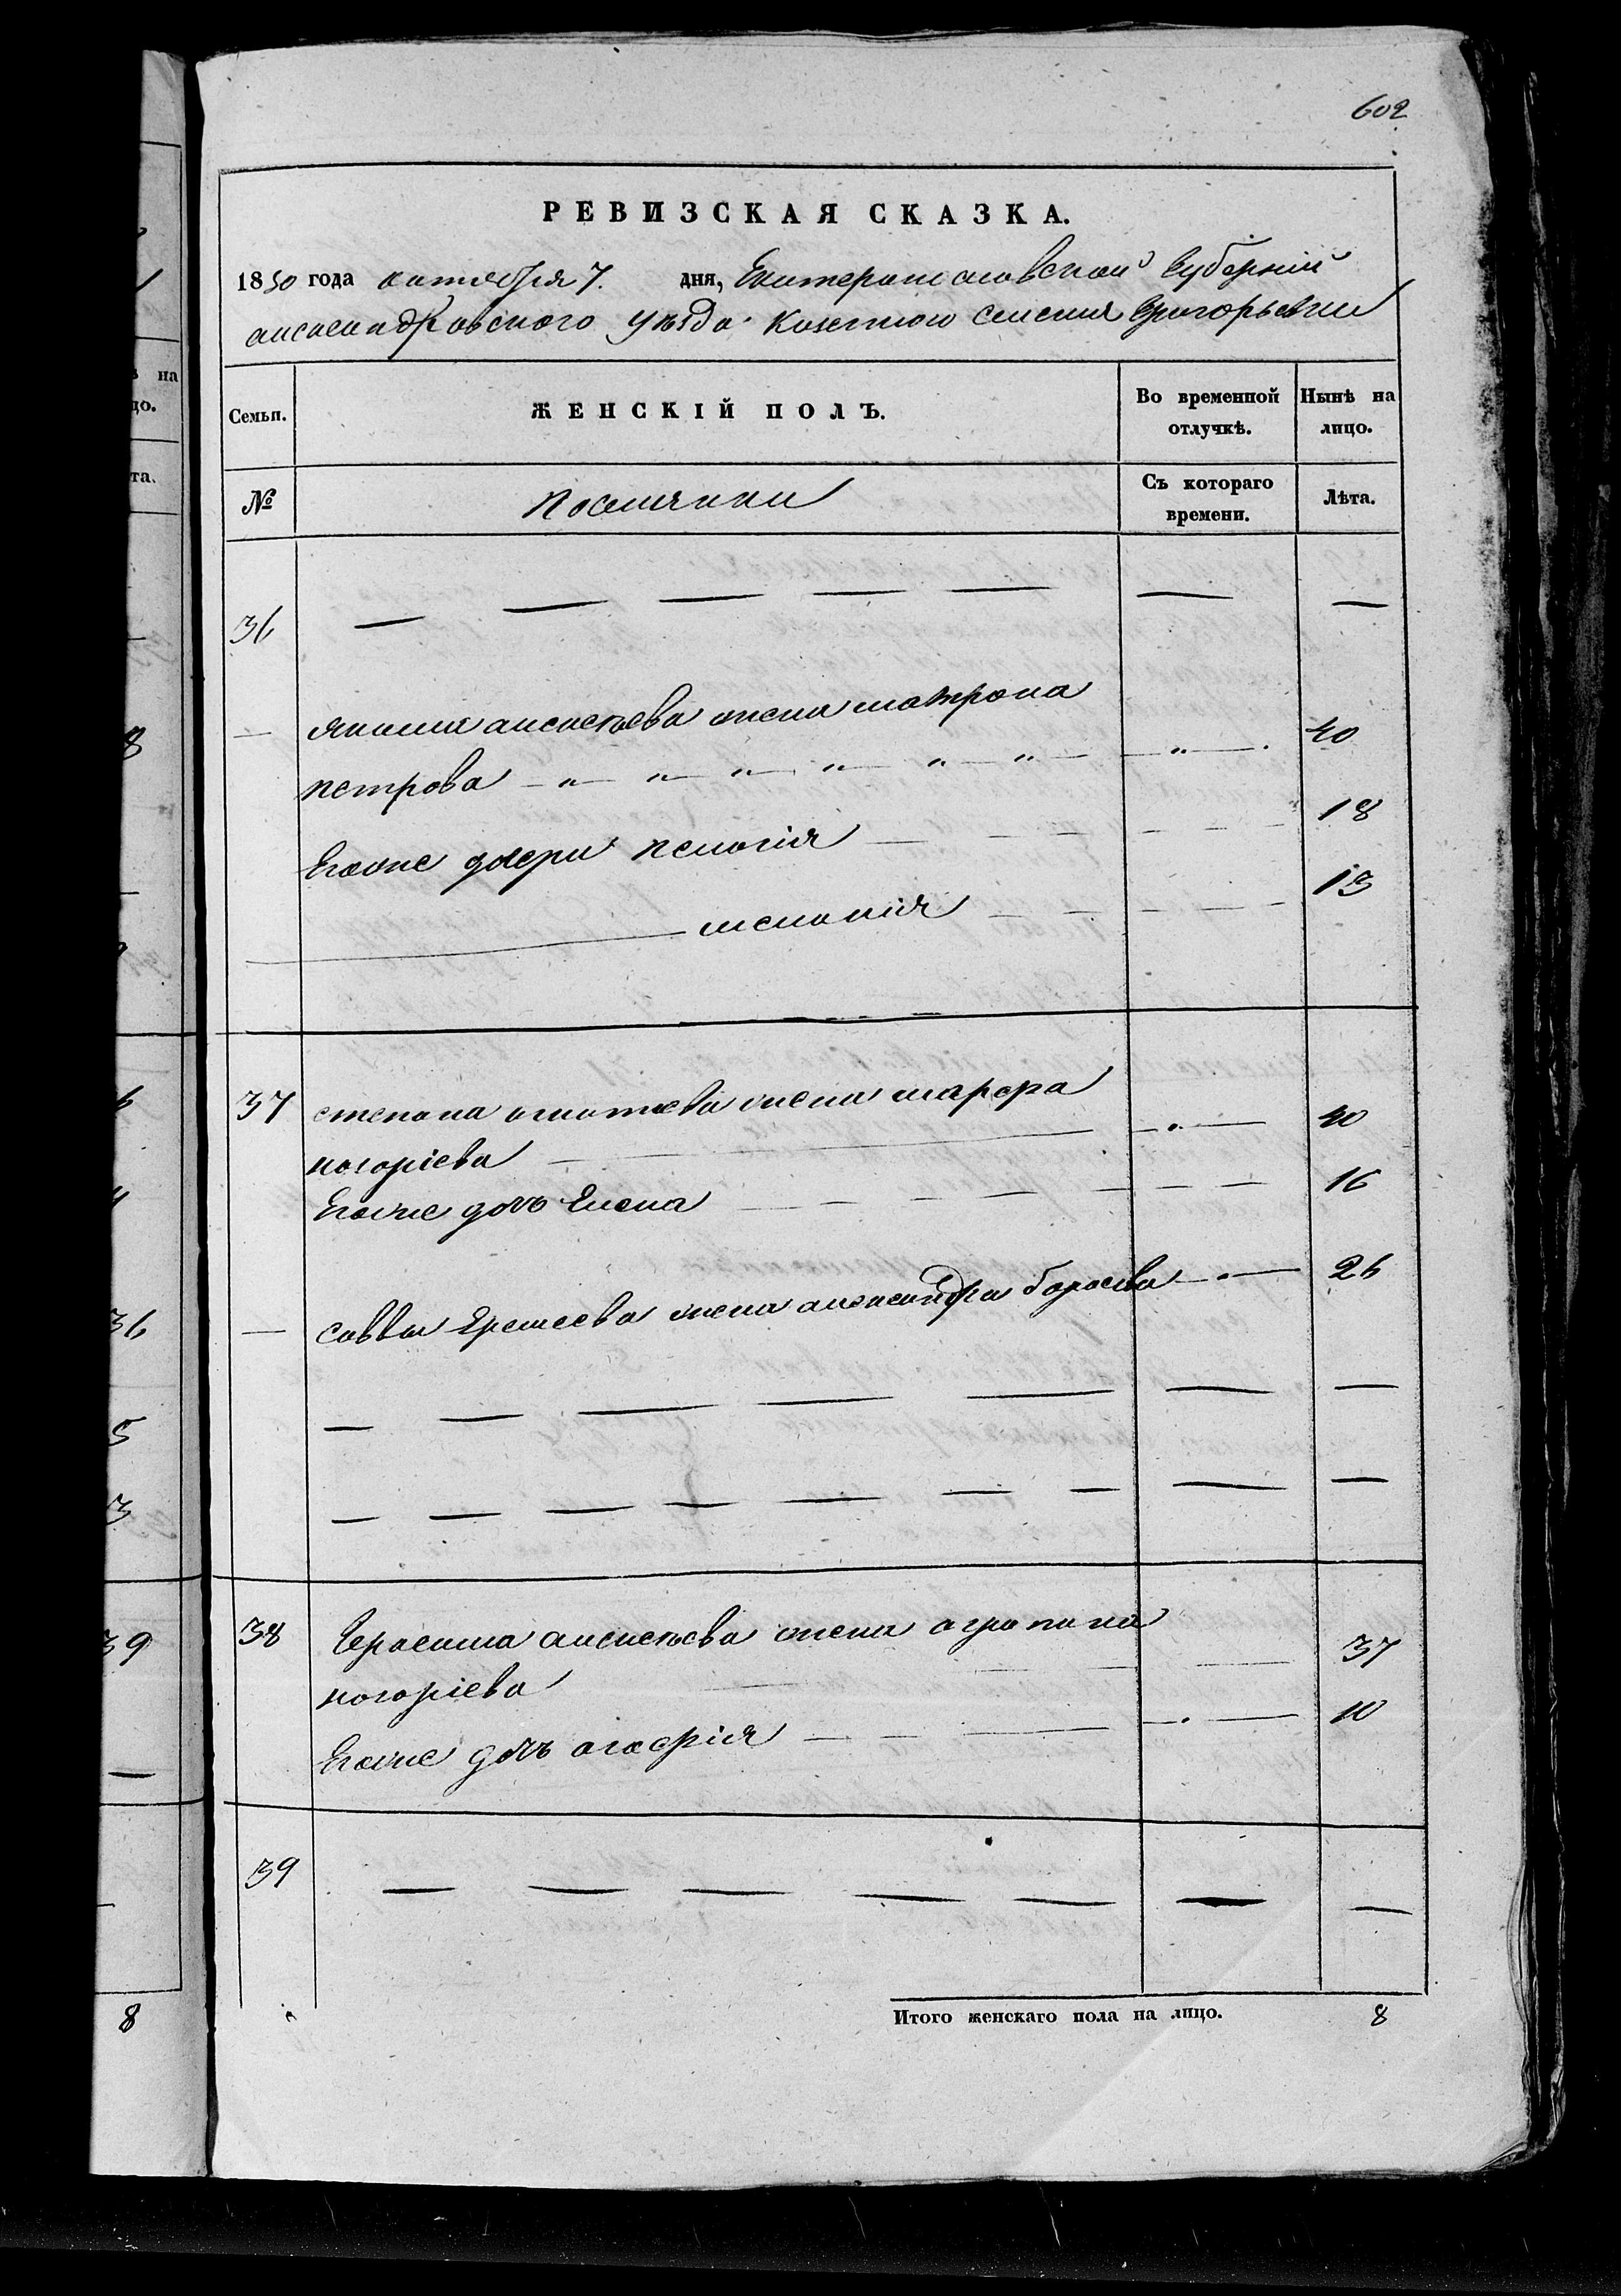 602
РЕВИЗСКАЯ СКАЗКА.
1850 года октября 7. дня, Екатеринославской Губерніи
александровского уѣзда казенного селенія Григорьевки
Семьи. ЖЕНСКІЙ ПОЛЪ. Во временной отлучкѣ. Нынѣ на лицо.
№ поселянки Съ котораго времени. Лѣта.
36 — — — — — — —
— якима алексѣева жена матрона
петрова — „ — „ — „ — „ — „ — „ — — „ — 40
Егоже дочери пелагія — — — 18
меланія — — — 13
37 степана игнатьева жена марфа
григоріева — — 40
Егоже дочь Елена — — — 16
— саввы Еремеева жена александра — 26
— — — — — — —
— — — — — — — — —
38 Герасима алексѣева жена агрипина
григоріева — — 37
Егоже дочь агафія — — — 10
39 — — — — — — —
Итого женскаго пола на лицо. 8